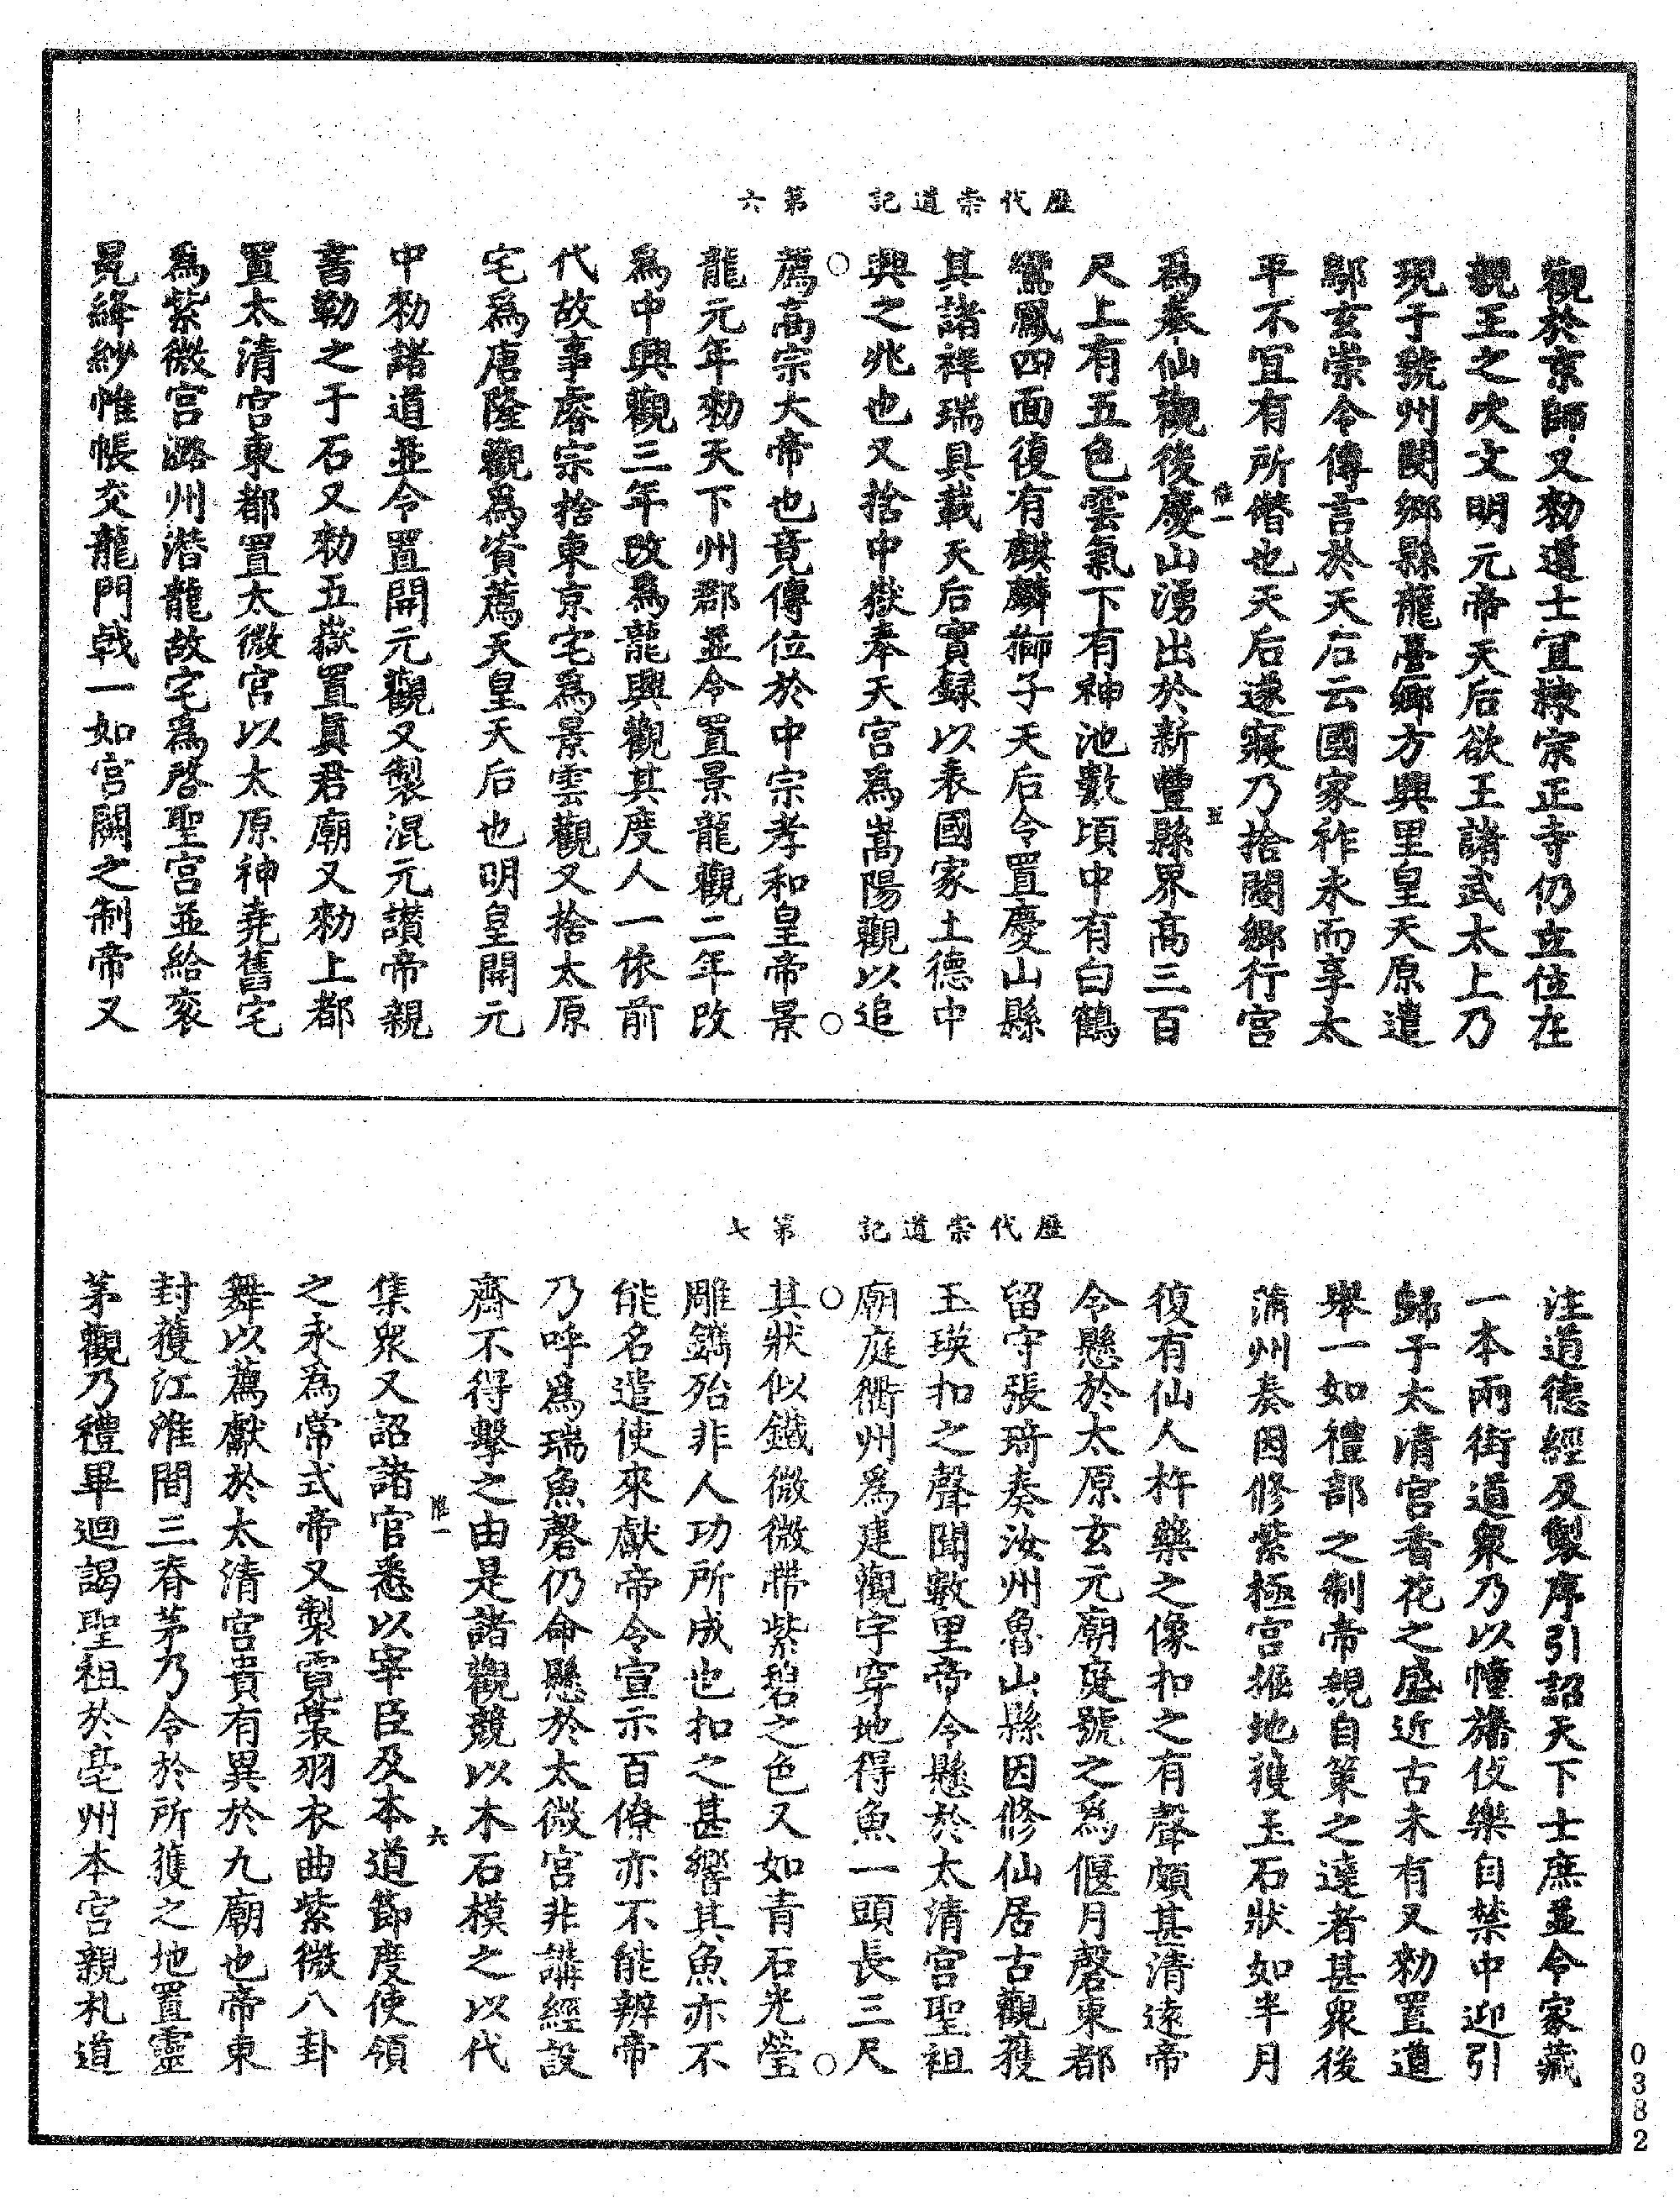 歷代崇道記　第六
觀於京師又勑道士宜隸宗正寺仍立位在
親王之次文明元帝天后欲王諸武太上乃
現于虢州閿鄉縣龍臺鄉方興里皇天原遣
鄔玄崇令傳言於天后云國家祚永而享太
平不宜有所僭也天后遂寢乃捨閿鄉行宮
爲奉仙觀後慶山湧出於新豐縣界高三百
尺上有五色雲氣下有神池數頃中有白鶴
鸞鳳四面復有麒麟獅子天后令置慶山縣
其諸祥瑞具載天后實録以表國家土德中
興之兆也又捨中嶽奉天宮爲嵩陽觀以追
薦高宗大帝也竟傳位於中宗孝和皇帝景
龍元年勑天下州郡並令置景龍觀二年改
爲中興觀三年改爲龍興觀其度人一依前
代故事睿宗捨東京宅爲景雲觀又捨太原
宅爲唐隆觀爲資薦天皇天后也明皇開元
中勑諸道並令置開元觀又製混元讚帝親
書勒之于石又勑五嶽置眞君廟又勑上都
置太清宮東都置太微宮以太原神堯舊宅
爲紫微宮潞州潛龍故宅爲啓聖宮並給袞
冕絳紗帷帳交龍門戟一如宮闕之制帝又
歷代崇道記　第七
注道德經及製序引詔天下士庶並令家藏
一本兩街道衆乃以幢旛伎樂自禁中迎引
歸于太清宮香花之盛近古未有又勑置道
舉一如禮部之制帝親自策之達者甚衆後
蒲州奏因修紫極宮掘地獲玉石狀如半月
復有仙人杵藥之像扣之有聲頗甚清遠帝
令懸於太原玄元廟庭號之爲偃月磬東都
留守張琦奏汝州魯山縣因修仙居古觀獲
玉瑛扣之聲聞數里帝令懸於太清宮聖祖
廟庭衢州爲建觀宇穿地得魚一頭長三尺
其狀似鐵微微帶紫碧之色又如青石光瑩
雕鐫殆非人功所成也扣之甚響其魚亦不
能名遣使來獻帝令宣示百僚亦不能辨帝
乃呼爲瑞魚磬仍命懸於太微宮非講經設
齋不得擊之由是諸觀競以木石模之以代
集衆又詔諸官悉以宰臣及本道節度使領
之永為常式帝又製霓裳羽衣曲紫微八卦
舞以薦獻於太清宮貴有異於九廟也帝東
封獲江淮間三脊茅乃令於所獲之地置靈
茅觀乃禮畢迴謁聖祖於亳州本宮親札道
0382